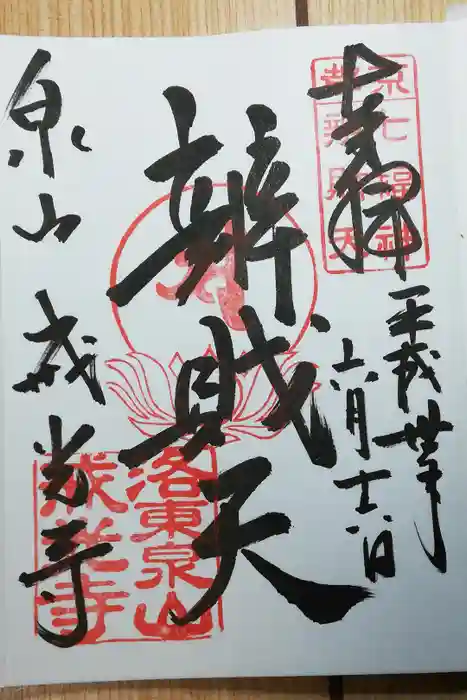 奉拝
京都
七福神
辨財天
平成卅年
六月
辨財天
泉山 戒光寺
洛東泉山
戒光寺